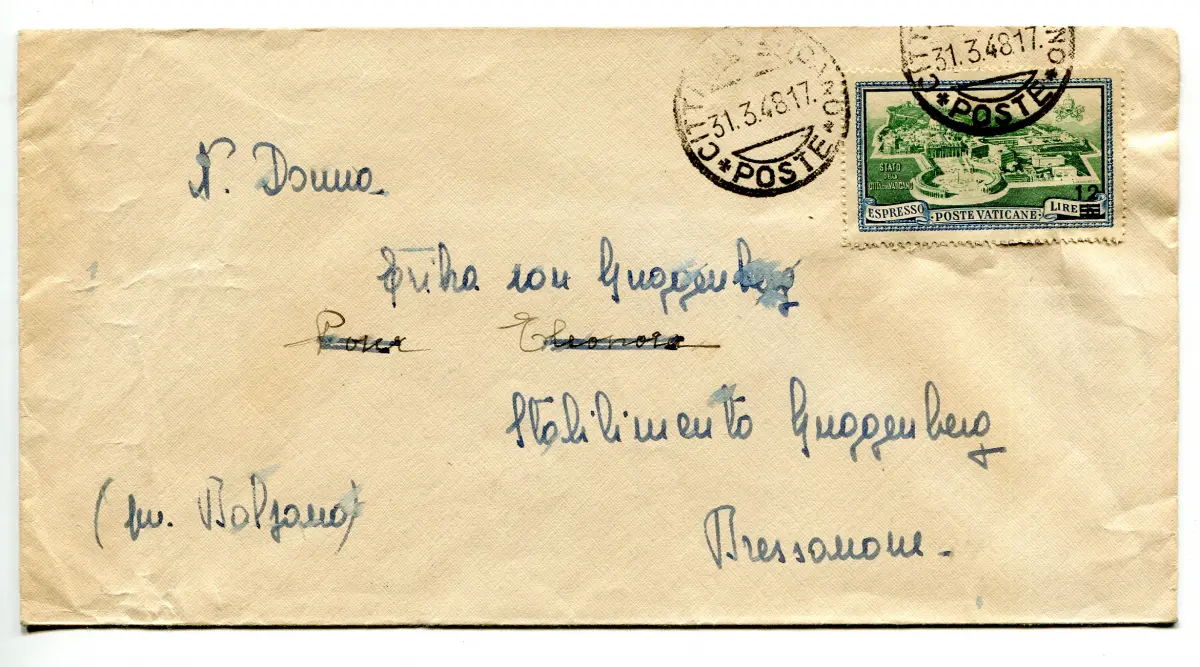 CITTÀ DEL VATICANO
31.3.48.17.
*POSTE*
31.3.48.17.
*POSTE*
STATO
DELLA
CITTÀ DEL VATICANO
12
ESPRESSO POSTE VATICANE LIRE
N. Donna
Erika von Guggenberg
Eleonora
Stabilimento Guggenberg
(pr. Bolzano)
Bressanone.